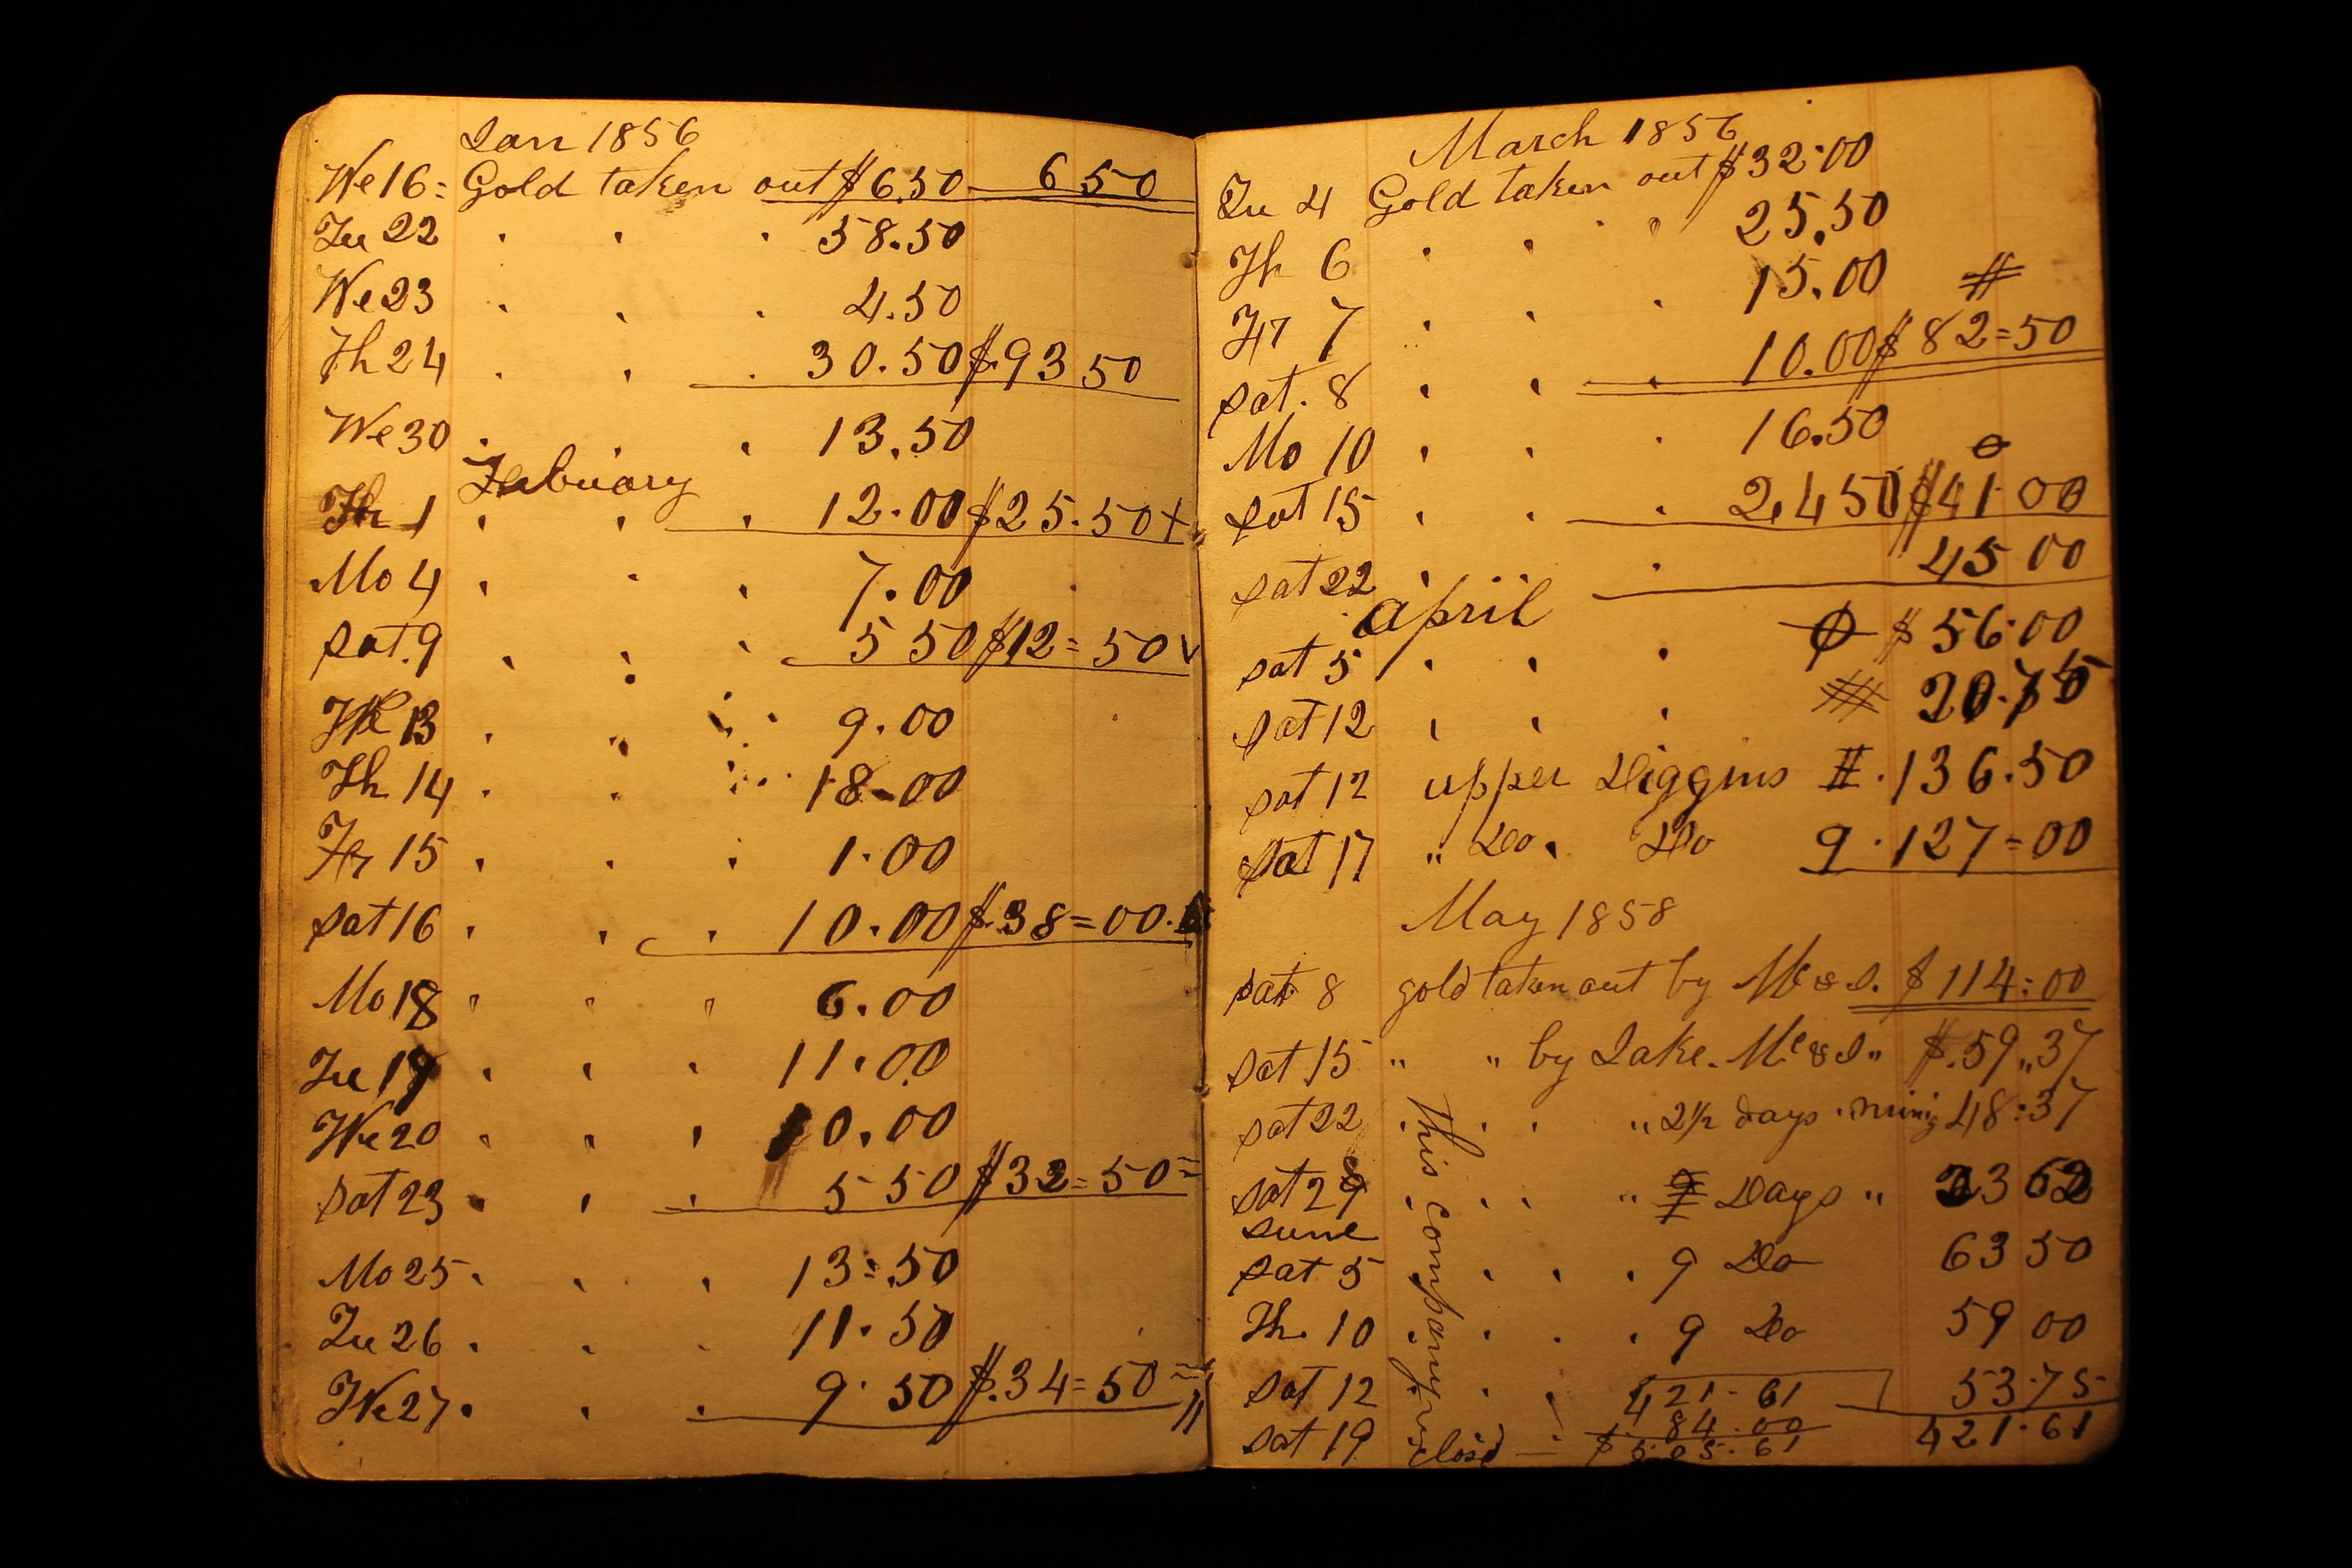 Jan 1856
We 16 = Gold taken out $6.50 6 50
Tu 22 " " " 58.50
We 23 " " " 4.50
Th 24 " " " 30.50 $.93 50
We 30 " " " 13.50
February
Fr 1 " " " 12.00 $25.50 +
Mo 4 " " " 7.00
Sat. 9 " " " 5 50 $12=50 v
We 13 " " " 9.00
Th. 14 " " " 18.00
Fr 15 " " " 1.00
Sat 16 " " " 10.00 $.38=00.
Mo 18 " " " 6.00
Tu 19 " " " 11.00
We 20 " " " 10.00
Sat 23 " " " 5 50 $32=50=
Mo 25 " " " 13=.50
Tu 26 " " " 11.50
We 27 " " " 9.50 $.34=50=
March 1856
Tu 4 Gold taken out $32.00
Th 6 " " " 25.50
Fr 7 " " " 15.00 #
Sat. 8 " " " 10.00 $82=50
Mo 10 " " " 16.50
Sat 15 " " " 2,450 $41.00
Sat 22 " " 45 00
April
Sat 5 " " " $56.00
Sat 12 " " " 20.75
Sat 12 upper Diggins #.136.50
Sat 17 " Do. Do 9.127=00
May 1858
Sat 8 gold taken out by Mc & J. $114=00
Sat 15 " " by Jake. Mc & J " $.59,,37
Sat 22 " " " " 2 1/2 days mining 48:37
Sat 29 " " " " 9 Days " 23 62
June
Sat 5 " " " 9 Do 63 50
Th. 10 " " " 9 Do 59 00
Sat 12 " " 421.61 53.75
84.00 421.61
Sat 19 closed $505.61
This company